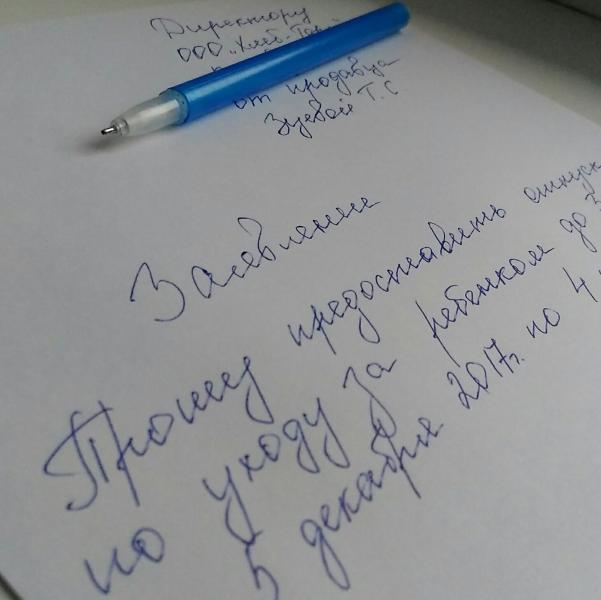 Директору
ООО "Хлеб-
от продавца
Зуевой Т.С
Заявление
Прошу предоставить отпуск
по уходу за ребенком до 3
5 декабря 2017г. по 4